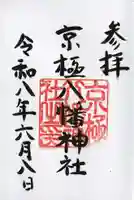 参拝
京極八幡神社
令和八年六月八日